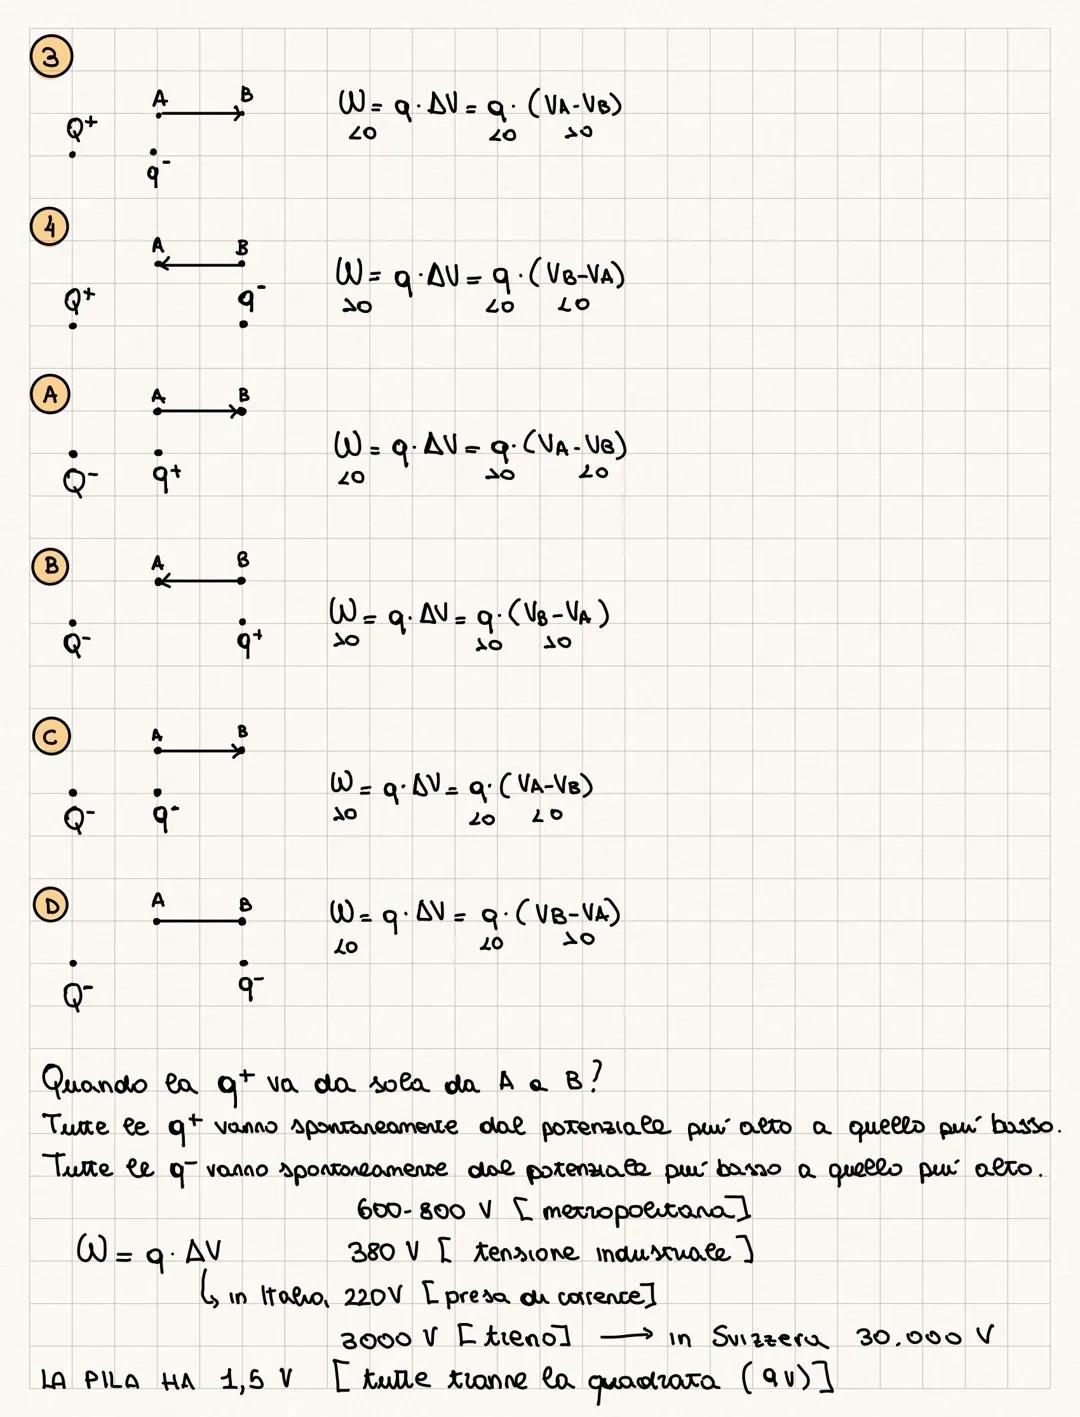 3
A B
Q+
q-
W = q · ΔV = q · (VA-VB)
<0 <0 >0
4
A B
Q+ q-
W = q · ΔV = q · (VB-VA)
>0 <0 <0
A
A B
Q- q+
W = q · ΔV = q · (VA-VB)
<0 >0 <0
B
A B
Q- q+
W = q · ΔV = q · (VB-VA)
>0 >0 >0
C
A B
Q- q-
W = q · ΔV = q · (VA-VB)
>0 <0 <0
D
A B
Q- q-
W = q · ΔV = q · (VB-VA)
<0 <0 >0
Quando la q+ va da sola da A a B?
Tutte le q+ vanno spontaneamente dal potenziale piu' alto a quello piu' basso.
Tutte le q- vanno spontaneamente dal potenziale piu' basso a quello piu' alto.
600-800 V [metropolitana]
W = q · ΔV 380 V [ tensione industriale ]
↳ in Italia, 220V [presa di corrente]
3000 V [treno] → in Svizzera 30.000 V
LA PILA HA 1,5 V [ tutte tranne la quadrata (9V)]